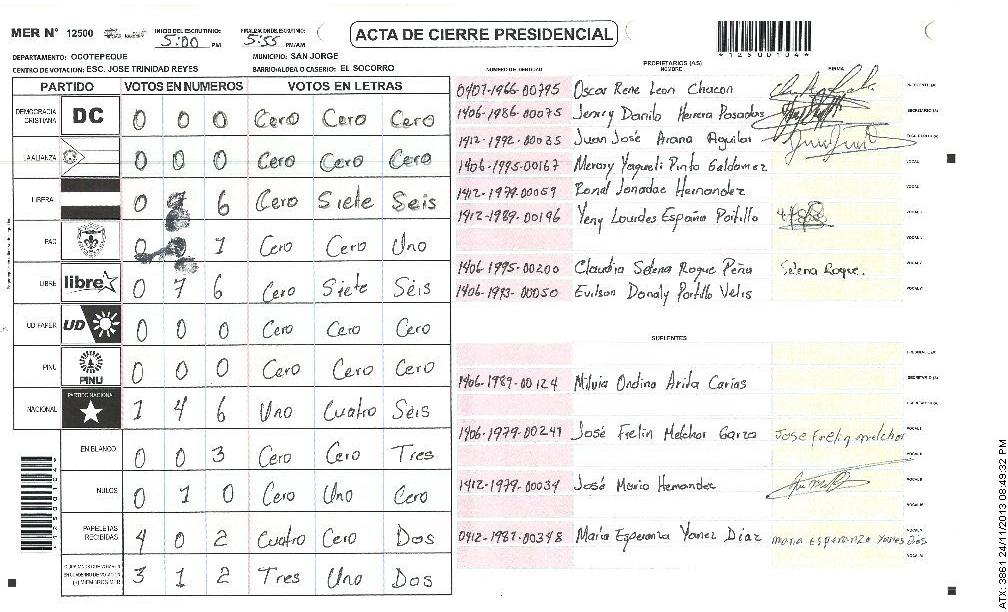 MER N° 12500
INICIO DEL ESCRUTINIO:
5:00 PM
FINALIZACION DE ESCRUTINIO:
5:55 PM/AM
ACTA DE CIERRE PRESIDENCIAL
*12500104*
DEPARTAMENTO: OCOTEPEQUE
MUNICIPIO: SAN JORGE
CENTRO DE VOTACION: ESC. JOSE TRINIDAD REYES
BARRIO/ALDEA O CASERIO: EL SOCORRO
PARTIDO VOTOS EN NUMEROS VOTOS EN LETRAS
DEMOCRACIA CRISTIANA DC 0 0 0 Cero Cero Cero
LA ALIANZA 0 0 0 Cero Cero Cero
LIBERA 0 7 6 Cero Siete Seis
PAC 0 0 1 Cero Cero Uno
LIBRE libre 0 7 6 Cero Siete Séis
UD FAPER UD 0 0 0 Cero Cero Cero
PINU PINU 0 0 0 Cero Cero Cero
NACIONAL PARTIDO NACIONAL 1 4 6 Uno Cuatro Séis
EN BLANCO 0 0 3 Cero Cero Tres
NULOS 0 1 0 Cero Uno Cero
PAPELETAS RECIBIDAS 4 0 2 Cuatro Cero Dos
3 1 2 Tres Uno Dos
PROPIETARIOS (AS)
NUMERO DE IDENTIDAD NOMBRE FIRMA
0401-1966-00795 Oscar Rene Leon Chacon PRESIDENTE (A)
1406-1986-00075 Jenry Danilo Herrera Posadas SECRETARIO (A)
1412-1992-00035 Juan José Arana Aguilar
1406-1995-00167 Merary Yaqueli Pinto Galdamez VOCAL
1412-1979-00059 Ronal Jonadac Hernandez VOCAL
1412-1989-00196 Yeny Lourdes España Portillo
1406-1995-00200 Claudia Selena Roque Peña Selena Roque.
1406-1993-00050 Evilson Donaly Portillo Velis
SUPLENTES
1406-1989-00124 Milvia Ondina Arita Carias SECRETARIO (A)
1406-1979-00241 José Frelin Melchor Garza Jose Frelin melchor
1412-1979-00034 José Mario Hernandez
0412-1987-00348 María Esperanza Yanez Díaz maria Esperanza Yanes Dias
ATX: 3861 24/11/2013 08:49:32 PM